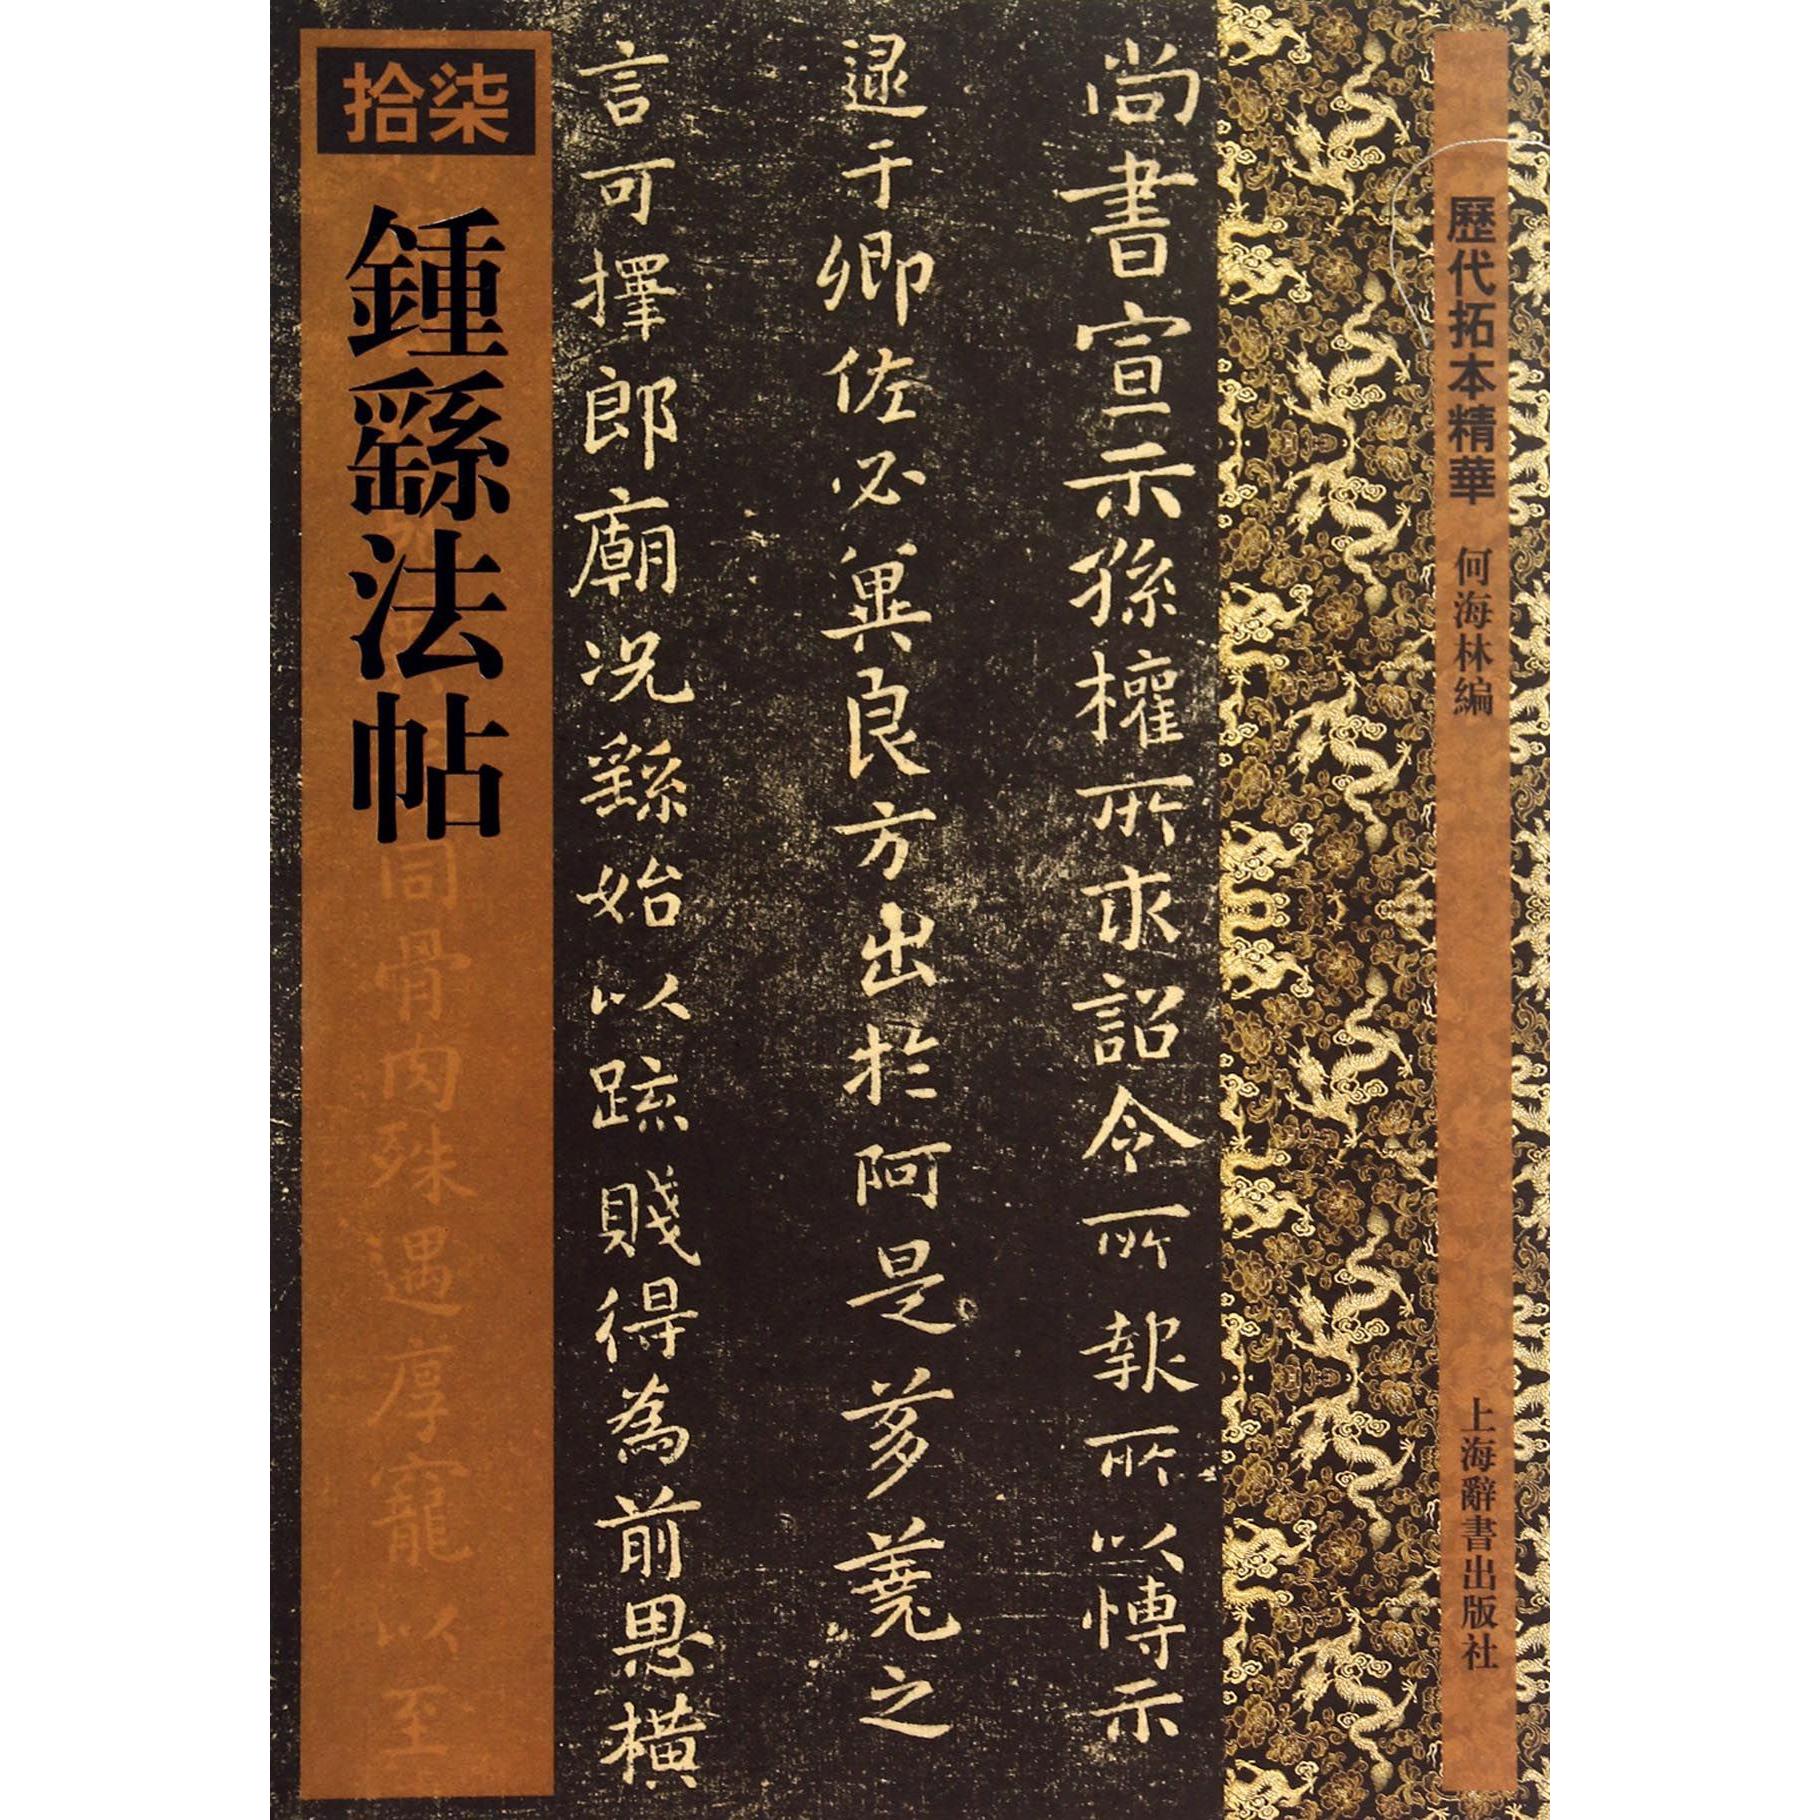 歷代拓本精華
何海林編
上海辭書出版社
尚書宣示孫權所求詔令所報所以博示
逮于卿佐必冀良方出於阿是芻蕘之
言可擇郎廟況繇始以疏賤得為前恩橫
拾柒
鍾繇法帖
同骨肉殊遇厚寵以至